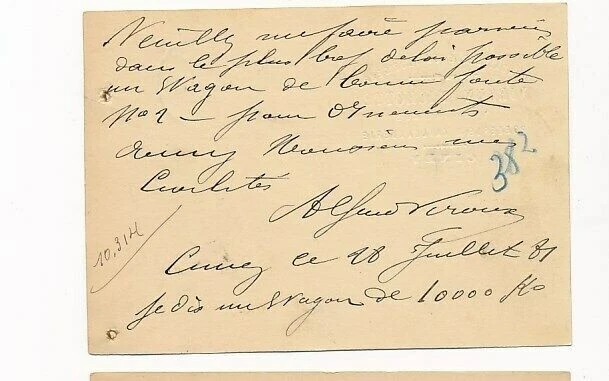 Veuillez me faire parvenir
dans le plus bref délai possible
un Wagon de bonne fonte
No 2 - pour Ornements
Monsieur mes
Civilités
382
Alfred
10.314
ce 28 Juillet 81
je dis un Wagon de 10000 Ko